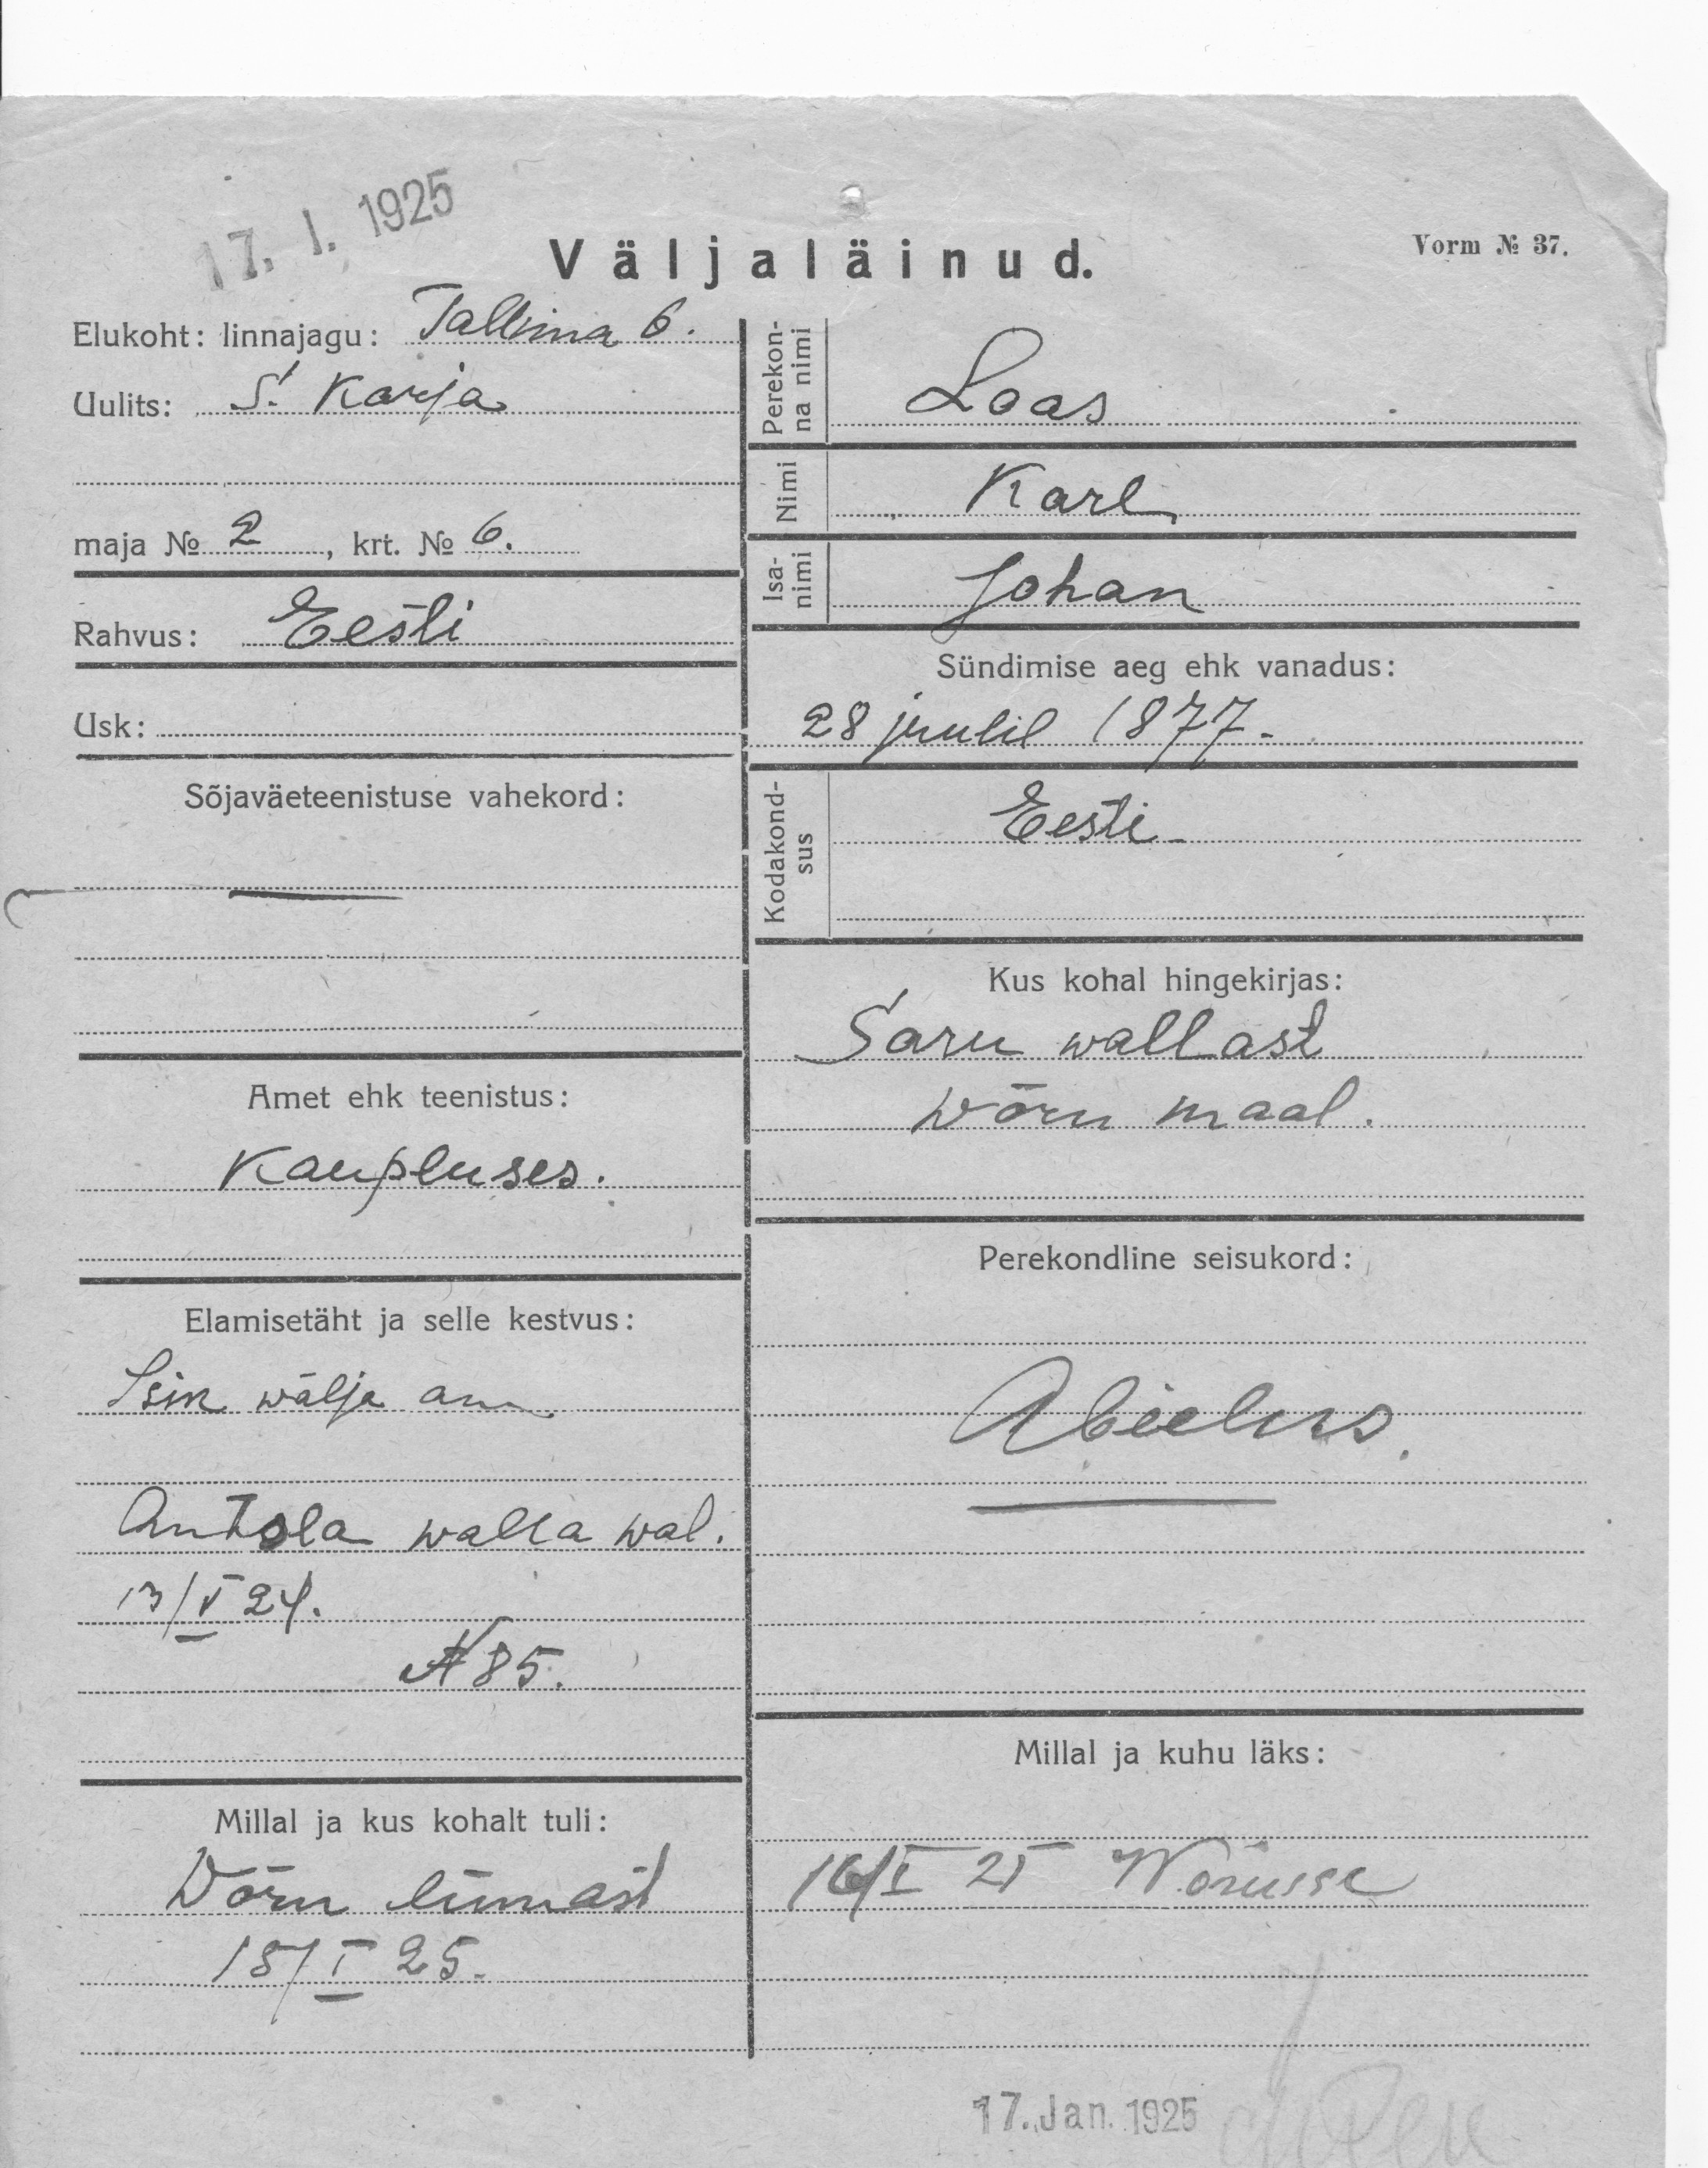 17. I. 1925
Väljaläinud.
Vorm № 37.
Elukoht: linnajagu: Tallinna 6.
Uulits: S. Karja
maja № 2, krt. № 6.
Rahvus: Eesti
Usk:
Sõjaväeteenistuse vahekord:
—
Amet ehk teenistus:
Kaupluses.
Elamisetäht ja selle kestvus:
Isik wälja ann
Antsla walla wal.
13/V 24.
N 85.
Millal ja kus kohalt tuli:
Wõru linnast
15/I 25.
Perekonna nimi
Loas
Nimi
Karl
Isanimi
Johan
Sündimise aeg ehk vanadus:
28 juulil 1877.
Kodakondsus
Eesti
Kus kohal hingekirjas:
Saru wallast
Wõru maal.
Perekondline seisukord:
Abielus.
Millal ja kuhu läks:
16/I 25 Wõrusse
17. Jan. 1925